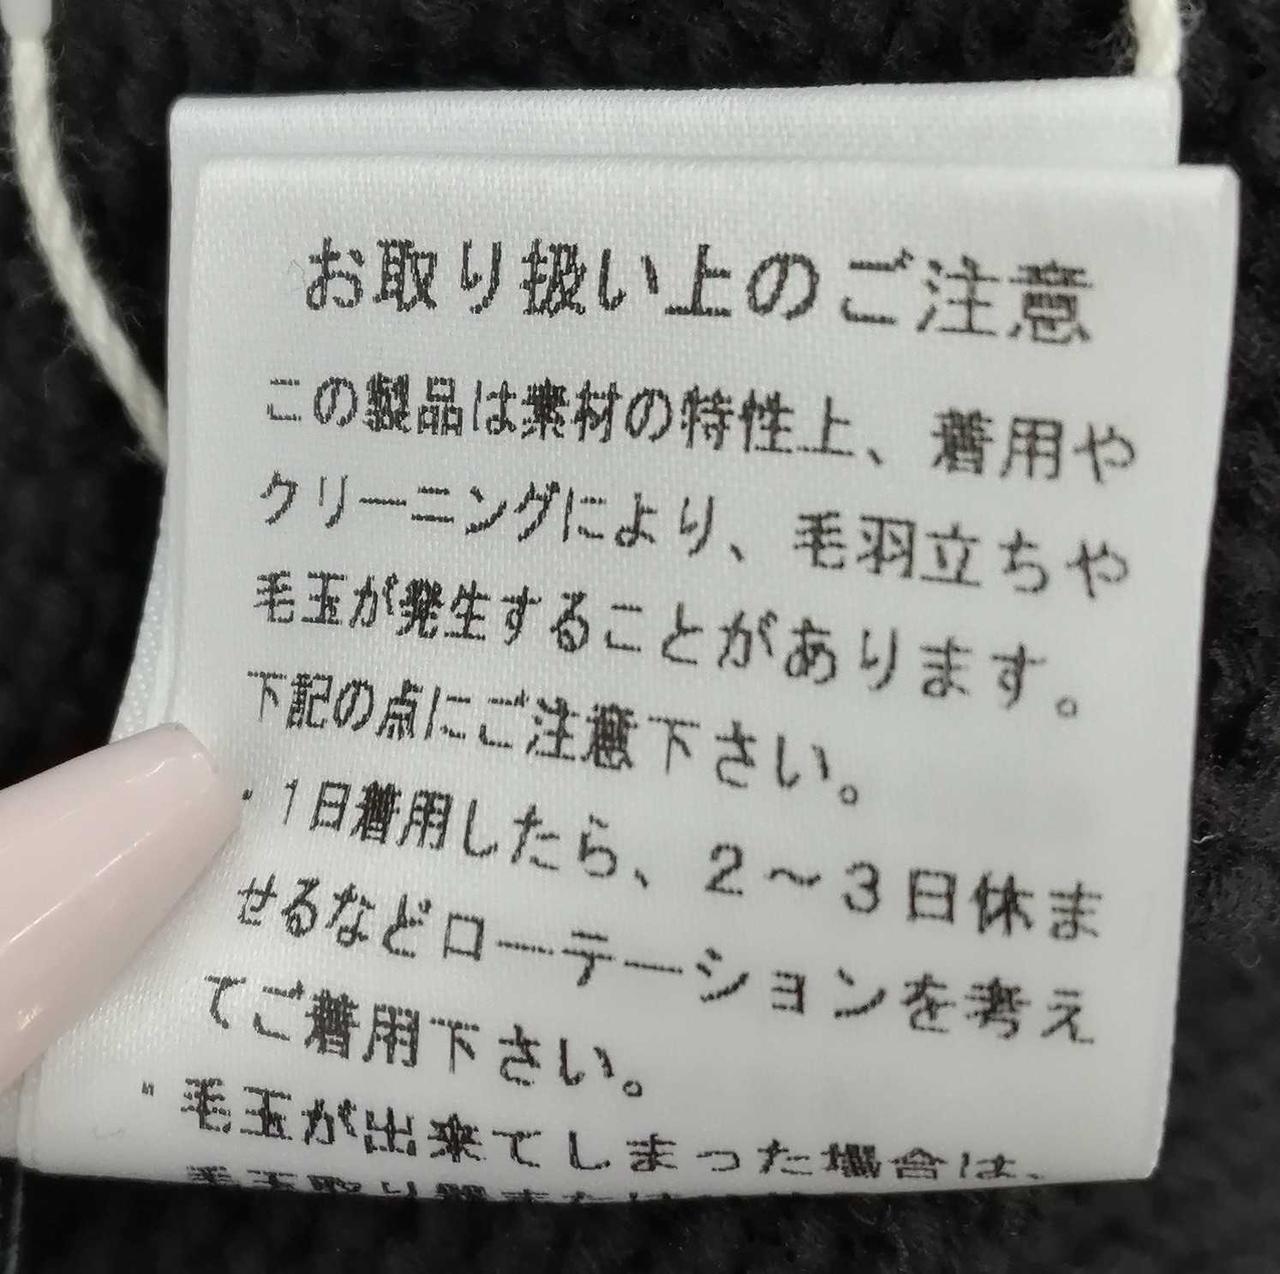 お取り扱い上のご注意
この製品は素材の特性上、着用や
クリーニングにより、毛羽立ちや
毛玉が発生することがあります。
下記の点にご注意下さい。
・1日着用したら、2～3日休ま
せるなどローテーションを考え
てご着用下さい。
・毛玉が出来てしまった場合は、
毛玉取り器または